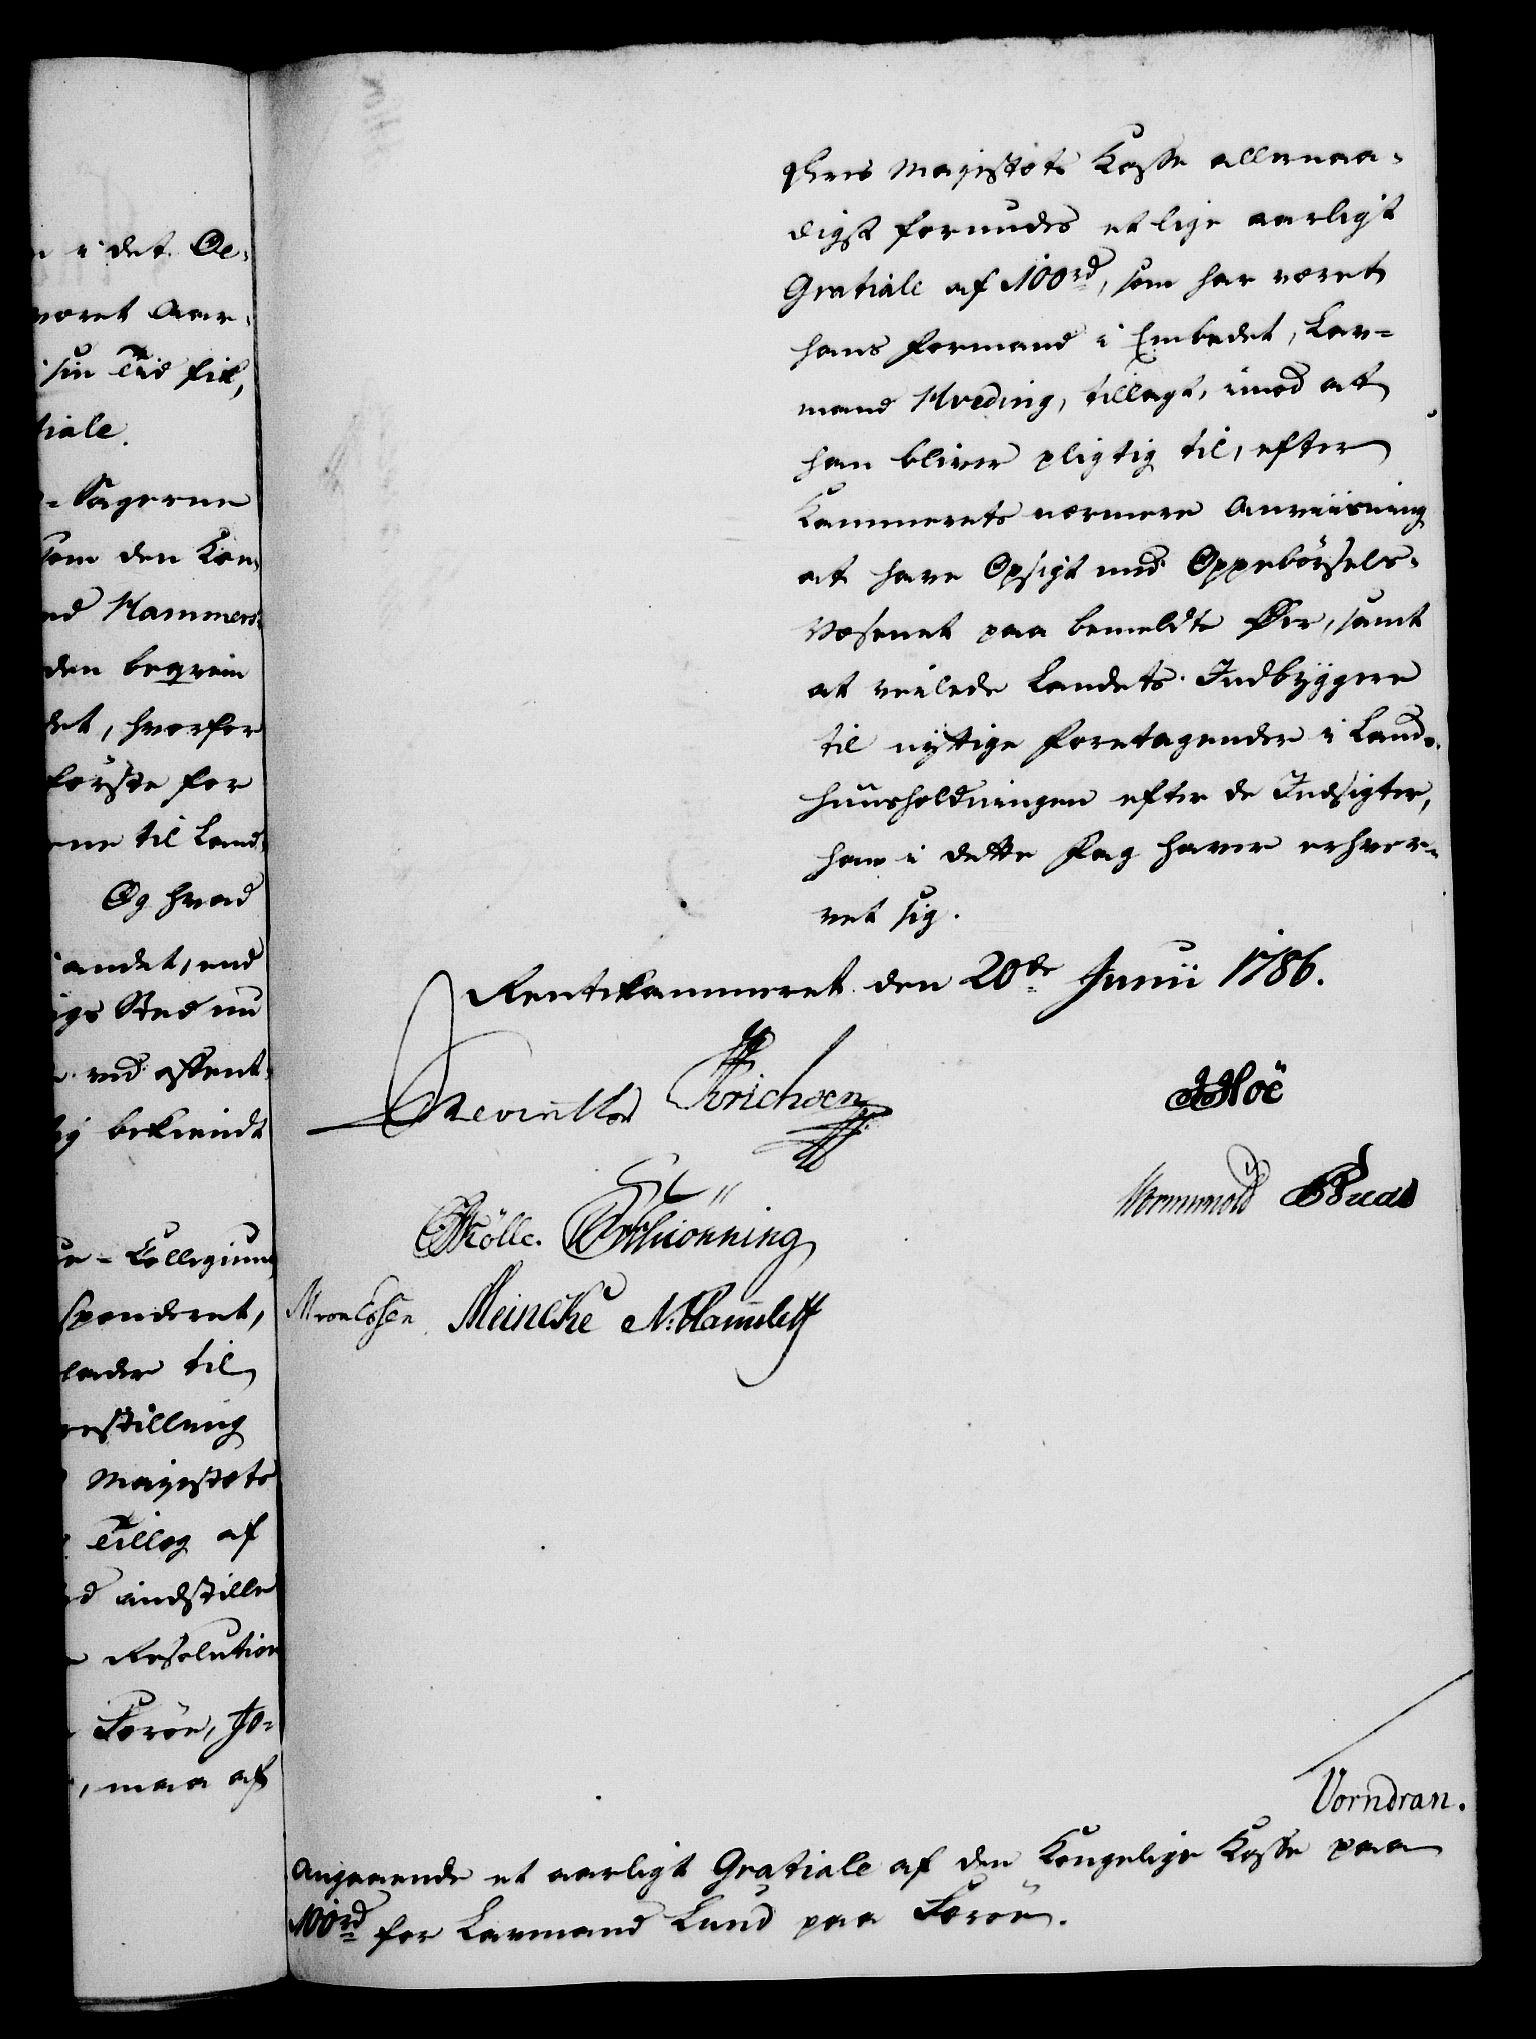 n i det Oe-
været Aar-
i sin Tid fik,
tiale.
- Sagerne
som den Kon-
ed Hammers-
den begrein
det, hvorfor
første for
ene til Land-
Og hvad
andet, end
igs Sted nu
ved offent-
ig bekiendt
ue-Collegium
sponderet,
lader til
restilling
Majestæts
Tillæg af
ed indstille
Resolution
Færöe, Jo-
, maa af
Deres Majestæts Kasse allernaa-
digst forundes et lige aarligt
Gratiale af 100 rd, som har været
hans Formand i Embedet, Lav-
mand Hveding, tillagt, imod at
han bliver pligtig til, efter
Kammerets nærmere Anviisning
at have Opsigt med Oppebørsels-
Væsenet paa bemeldte Øer, samt
at veilede Landets Indbyggere
til nyttige Foretagender i Land-
huusholdningen efter de Indsigter,
han i dette Fag haver erhver-
vet sig.
Rentekammeret den 20de Junii 1786.
Reventlow Erichsen JHoë
Wormskiold Buds
Mölle. Schiönning
M von Essen Meincke N: Hammeleff
Vorndran.
Angaaende et aarligt Gratiale af den Kongelige Kasse paa
100 rd for Lavmand Lund paa Færöe.